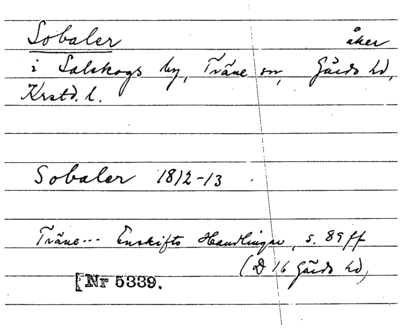 Sobaler åker
i Salskogs by, Träne sn, Gärds hd,
Krstd. l.
Sobaler 1812-13
Träne... Enskifts Handlingar, s. 89 ff
(D 16 Gärds hd)
[Nr 5339.